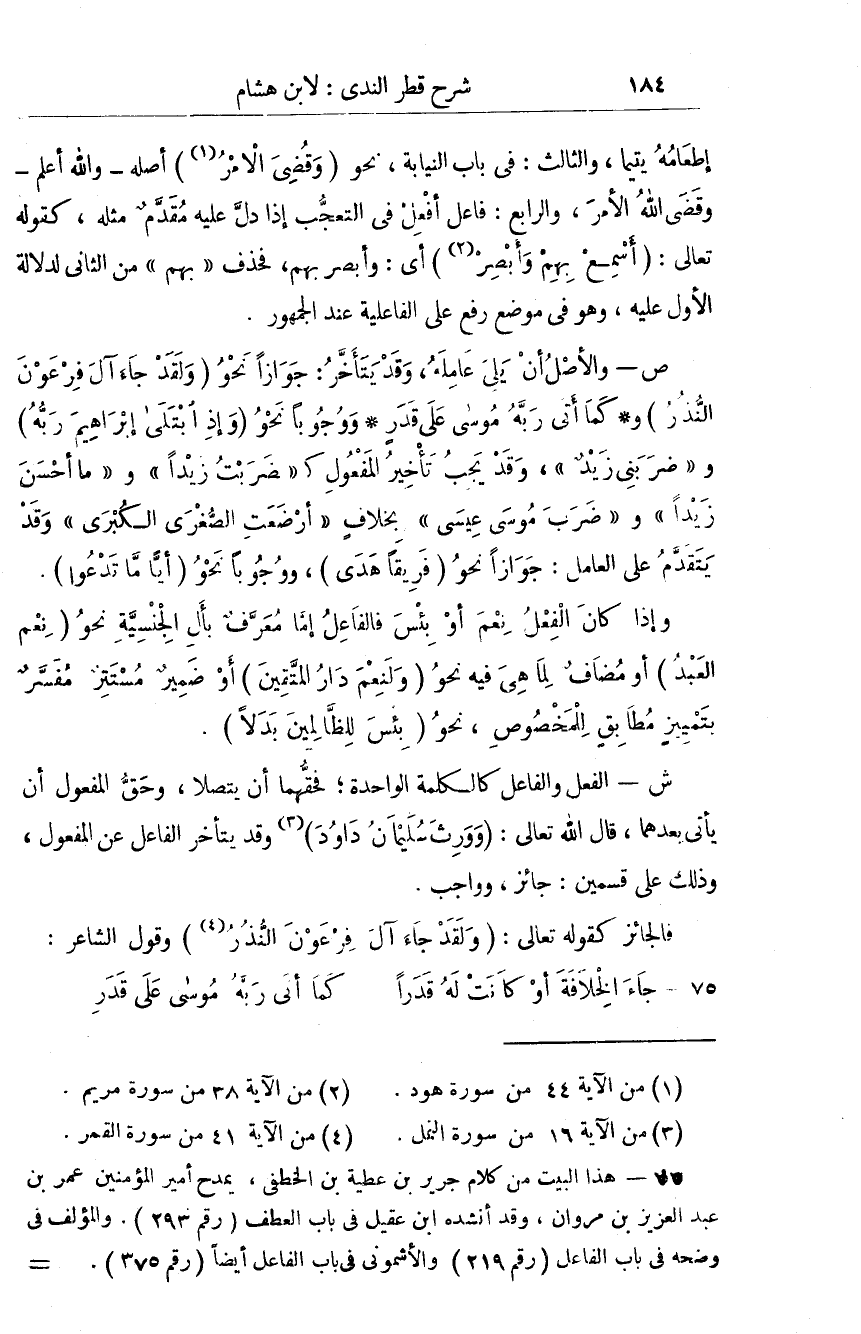 ١٨٤ شرح قطر الندى : لابن هشام
إِطعَامُهُ يتيما ، والثالث : فى باب النيابة ، نحو ( وَقُضِىَ الْامْرُ(١) ) أصله ـ والله أعلم ـ
وقَضَى اللهُ الأمرَ ، والرابع : فاعل أفْعِلْ فى التعجُّب إذا دلَّ عليه مُقَدَّمٌ مثله ، كقوله
تعالى : ( أَسْمِعْ بِهِمْ وَأَبْصِرْ(٢) ) أى : وأبصر بهم، فحذف « بهم » من الثانى لدلالة
الأول عليه ، وهو فى موضع رفع على الفاعلية عند الجمهور .
ص — والأصْلُ أنْ يَلِيَ عَامِلَهُ، وَقَدْ يَتَأَخَّرُ: جَوَازاً نَحْوُ ( وَلَقَدْ جَاءَ آلَ فِرْعَوْنَ
النُّذُرُ ) و* كَمَا أَتَى رَبَّهُ مُوسَى عَلَى قَدَرِ * وَوُجُوباً نَحْوُ (وَإِذِ ابْتَلَىٰ إِبْرَاهِيمَ رَبُّهُ)
و « ضرَبَنِى زَيْدٌ » ، وَقَدْ يَجِبُ تَأْخِيرُ المَفْعُولِ كـ « ضَرَبْتُ زيْداً » و « ما أحْسَنَ
زَيْداً » و « ضَرَبَ مُوسَى عِيسَى » بِخلافِ « أرْضَعَتِ الصُّغْرَى الـكُبْرَى » وَقَدْ
يَتَقَدَّمُ على العامل : جَوَازاً نحوُ ( فَرِيقاً هَدَى ) ، ووجُوباً نَحْوُ ( أيًّا مَّا تَدْعُوا ) .
وإذا كانَ الْفِعْلُ نِعْمَ أوْ بِئْسَ فالفَاعِلُ إمَّا مُعَرَّفٌ بألِ الجِنْسِيَّةِ نحوُ ( نِعْم
العَبْدُ ) أو مُضَافٌ لِمَا هِىَ فيه نحوُ ( وَلَنِعْمَ دَارُ المُتَّقِينَ ) أوْ ضَمِيرٌ مُسْتَتِرٌ مُفَسَّرٌ
بتَمْيِيزٍ مُطَابِقٍ لِلْمَخْصُوصِ ، نحوُ ( بِئْسَ لِلظَّالِمِينَ بَدَلاً ) .
ش — الفعل والفاعل كالـكلمة الواحدة ؛ فحقُّهما أن يتصلا ، وحَقُّ المفعول أن
يأتى بعدهما ، قال الله تعالى : (وَوَرِثَ سُلَيْمَانُ دَاوُدَ)(٣) وقد يتأخر الفاعل عن المفعول ،
وذلك على قسمين : جائز ، وواجب .
فالجائز كقوله تعالى : ( وَلَقَدْ جَاءَ آلَ فِرْعَوْنَ النُّذُرُ(٤) ) وقول الشاعر :
٧٥ - جَاءَ الخِلَافَةَ أوْ كَانَتْ لَهُ قَدَراً كَمَا أتَى رَبَّهُ مُوسَى عَلَى قَدَرِ
(١) من الآية ٤٤ من سورة هود . (٢) من الآية ٣٨ من سورة مريم .
(٣) من الآية ١٦ من سورة النمل . (٤) من الآية ٤١ من سورة القمر .
— هذا البيت من كلام جرير بن عطية بن الخطفى ، يمدح أمير المؤمنين عمر بن
عبد العزيز بن مروان ، وقد أنشده ابن عقيل فى باب العطف ( رقم ٢٩٣ ) . والمؤلف فى
وضحه فى باب الفاعل ( رقم ٢١٩ ) والأشمونى فى باب الفاعل أيضاً ( رقم ٣٧٥ ) . =